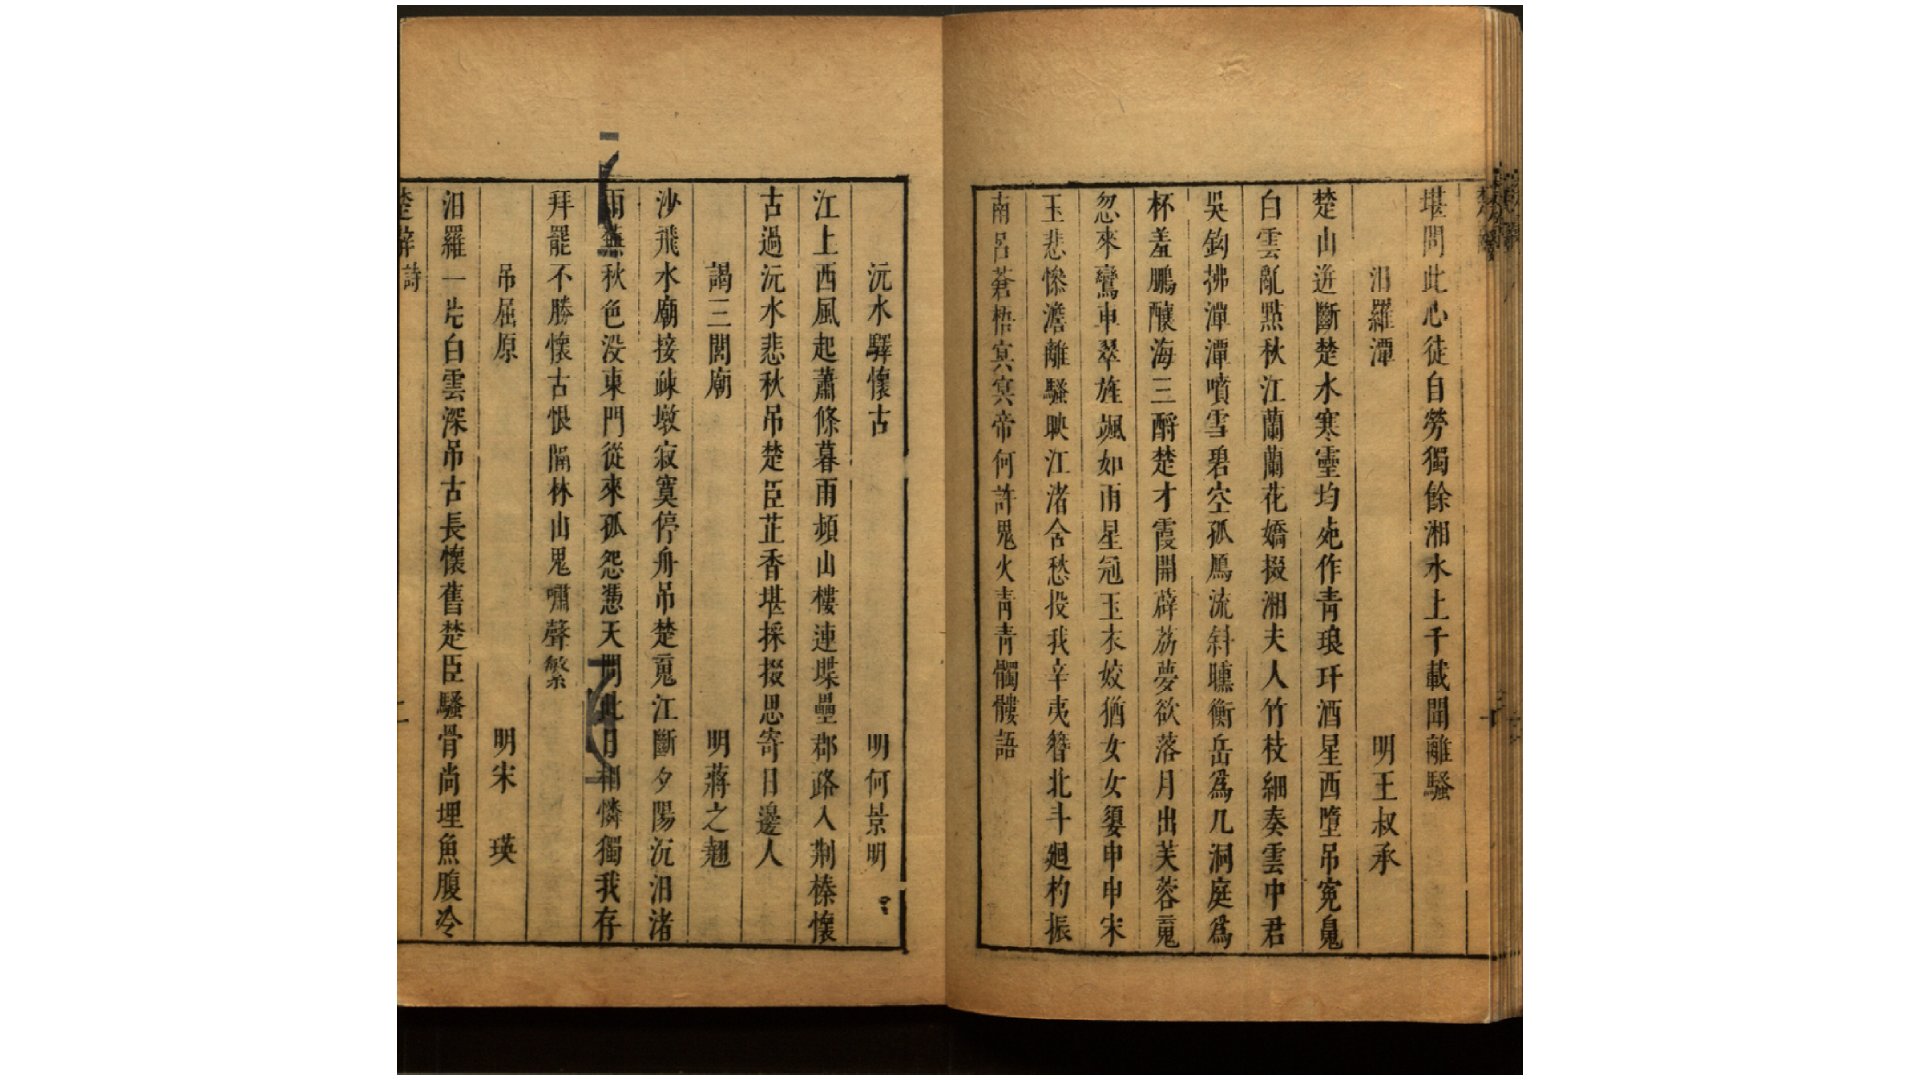 堪問此心徒自勞獨餘湘水上千載聞離騷
汨羅潭 明王叔承
楚山逰斷楚水寒靈均死作青琅玕酒星西墮吊寃䰟
白雲亂點秋江蘭蘭花嬌掇湘夫人竹枝細奏雲中君
吳鈎拂潭潭噴雪碧空孤鴈流斜曛衡岳爲几洞庭爲
杯羞鵬釀海三酹楚才霞開薜荔夢欲落月出芙蓉䰟
忽來鸞車翠旌颯如雨星冠玉衣姣猶女女嬃申申宋
玉悲慘澹離騷映江渚含愁投我辛夷簪北斗廻杓振
南呂蒼梧㝠㝠帝何許鬼火青青髑髏語
沅水驛懷古 明何景明
江上西風起蕭條暮雨頻山樓連堞壘郡路入荆榛懷
古過沅水悲秋吊楚臣芷香堪採掇思寄日邊人
謁三閭廟 明蔣之翹
沙飛水廟接疎墩寂寞停舟吊楚䰟江斷夕陽沉汨渚
雨蕪秋色没東門從來孤怨憑天問此日相憐獨我存
拜罷不勝懷古恨隔林山鬼嘯聲繁
吊屈原 明宋瑛
汨羅一片白雲深吊古長懷舊楚臣騷骨尚埋魚腹冷
楚辭 詩 二